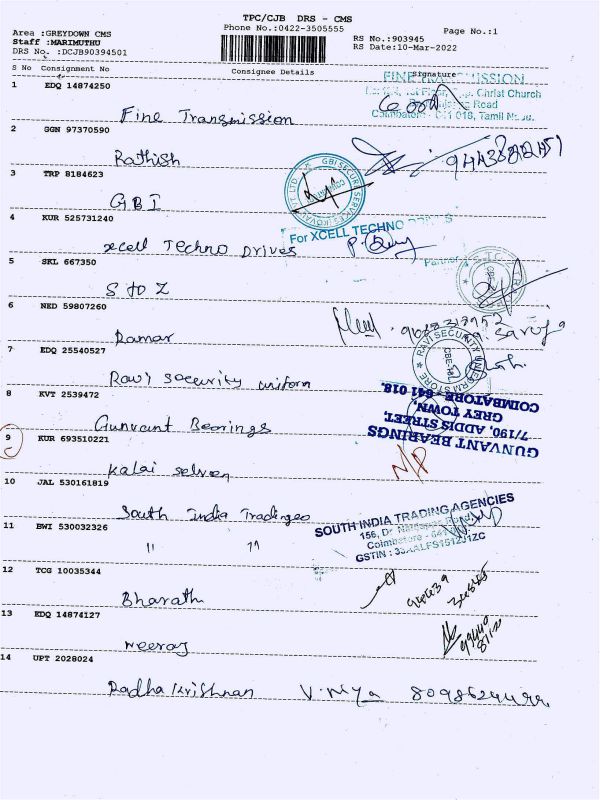 TPC/CJB DRS - CMS
Area :GREYDOWN CMS
Phone No.:0422-3505555
Page No.:1
Staff :MARIMUTHU
RS No.:903945
DRS No. :DCJB90394501
RS Date:10-Mar-2022
S No Consignment No
Consignee Details
Signature
1 EDQ 14874250
Fine Transmission
FINE TRANSMISSION
Christ Church
Road
Coimbatore - 641 018, Tamil
2 GGN 97370590
Rathish
3 TRP 8184623
GBI
GBI SECURITY SERVICES
4 KUR 525731240
xcell Techno Drives
For XCELL TECHNO DRIVES
Partner
5 SKL 667350
S to Z
6 NED 59807260
Ramar
Saroja
7 EDQ 25540527
Ravi Security uniform
RAVI SECURITY UNIFORM STORE
CBE-18
8 KVT 2539472
Gunvant Bearings
GUNVANT BEARINGS
7/190, ADDIS STREET,
GREY TOWN,
COIMBATORE - 641 018.
9 KUR 693510221
Kalai selven
N/D
10 JAL 530161819
South India Tradinges
SOUTH INDIA TRADING AGENCIES
156, Dr
Coimbatore - 641
GSTIN :
11 BWI 530032326
" "
12 TCG 10035344
Bharath
13 EDQ 14874127
Neeraj
14 UPT 2028024
Radha Krishnan